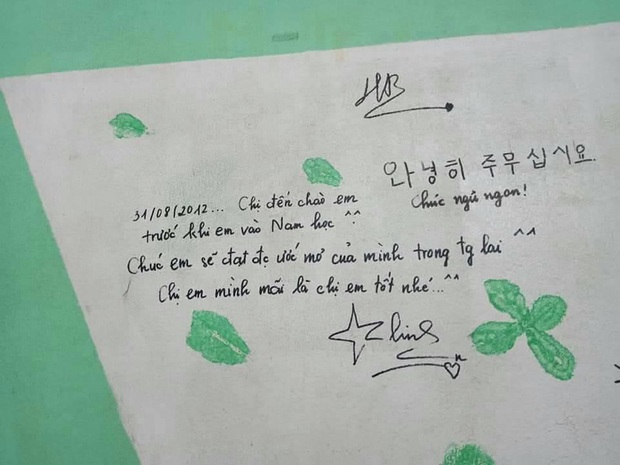 HB
안녕히 주무십시요.
Chúc ngủ ngon!
31/08/2012... Chị đến chào em
trước khi em vào Nam học ^^
Chúc em sẽ đạt đc ước mơ của mình trong tg lai ^^
Chị em mình mãi là chị em tốt nhé...^^